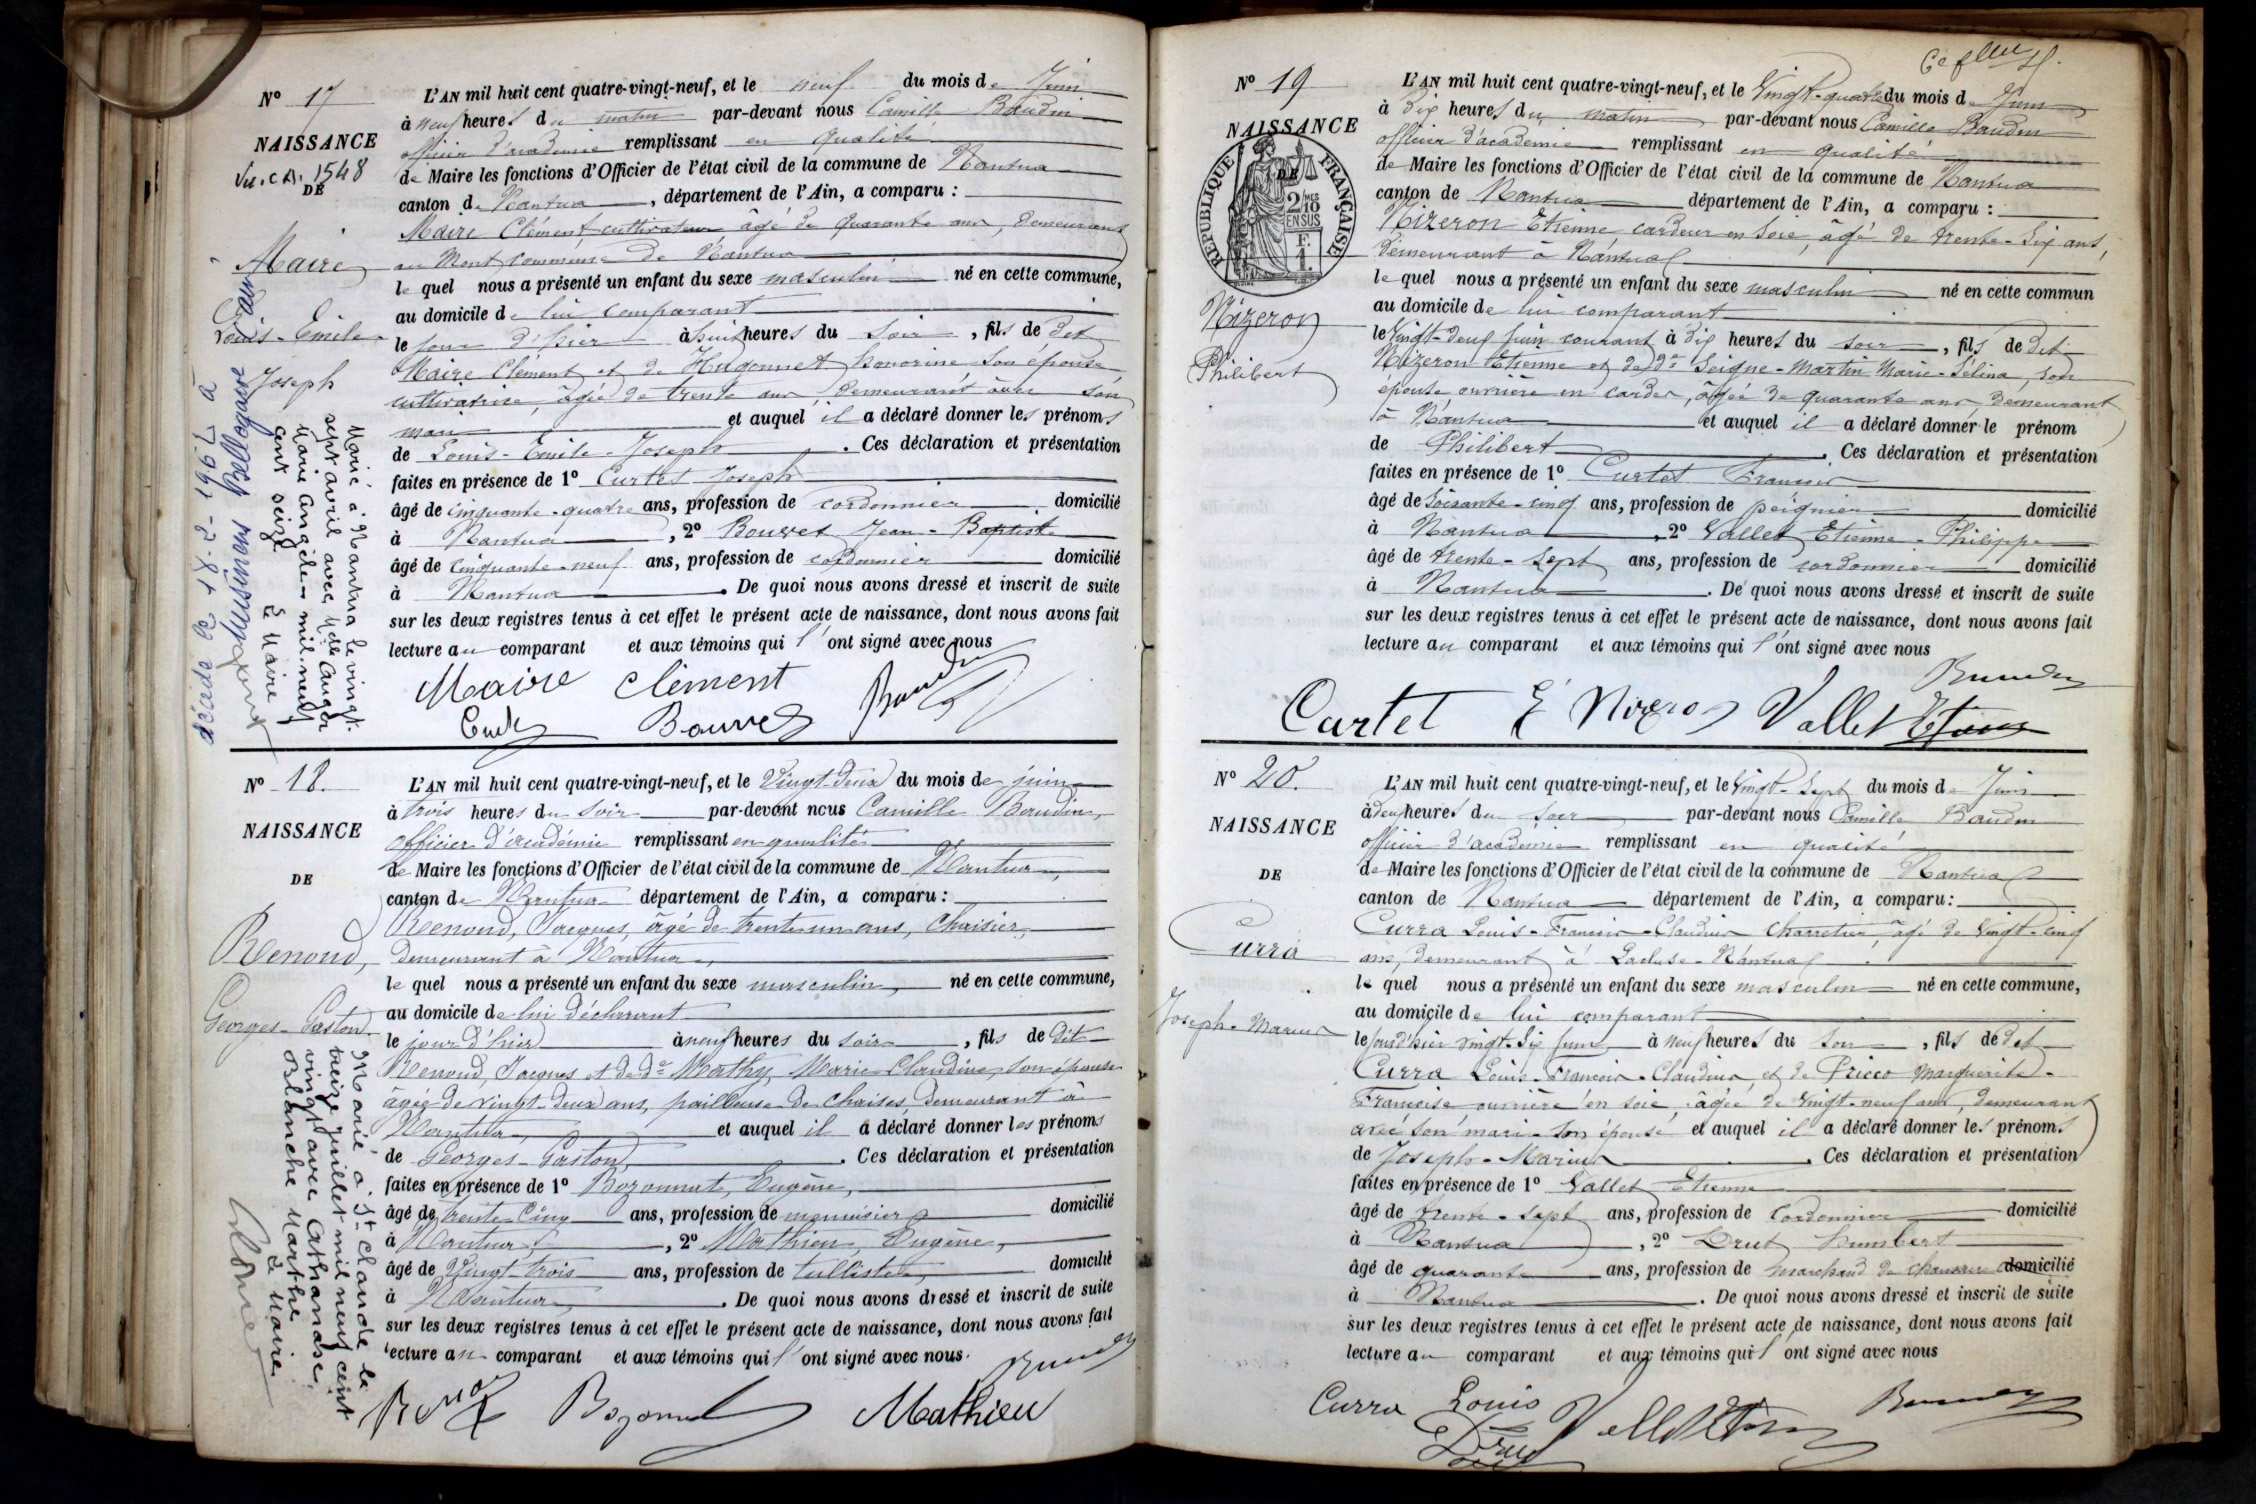 Nº 17
NAISSANCE
Vu. C.A. 1548
DE
Maire
Louis-Emile
Joseph
Marié à Nantua le vingt-
sept avril avec Melle Auger
Marie Angèle - mil neuf
cent seize Le Maire
décédé le 18-2-1962 à
Bellegarde (Ain)
L'AN mil huit cent quatre-vingt-neuf, et le neuf du mois de Juin
à neuf heures du matin par-devant nous Camille Baudin
officier d'académie remplissant en qualité
de Maire les fonctions d'Officier de l'état civil de la commune de Nantua
canton de Nantua, département de l'Ain, a comparu :
Maire Clément cultivateur âgé de quarante ans, demeurant
au Mont commune de Nantua
le quel nous a présenté un enfant du sexe masculin né en cette commune,
au domicile de lui comparant
le jour d'hier à huit heures du soir, fils de dit
Maire Clément et de Hugonnet honorine son épouse
cultivatrice, âgée de trente ans, demeurant avec son
mari et auquel il a déclaré donner les prénoms
de Louis-Emile-Joseph. Ces déclaration et présentation
faites en présence de 1º Curtet Joseph
âgé de cinquante-quatre ans, profession de cordonnier domicilié
à Nantua, 2º Bouvet Jean-Baptiste
âgé de cinquante-neuf ans, profession de cordonnier domicilié
à Nantua. De quoi nous avons dressé et inscrit de suite
sur les deux registres tenus à cet effet le présent acte de naissance, dont nous avons fait
lecture au comparant et aux témoins qui l'ont signé avec nous
Maire Clément
Bouvet
Nº 18.
NAISSANCE
DE
Renoud,
Georges-Gaston
Marié à St-Claude le
treize juillet mil neuf cent
vingt avec Athanase
Blanche Marthe
Le Maire
L'AN mil huit cent quatre-vingt-neuf, et le Vingt-deux du mois de juin
à trois heures du soir par-devant nous Camille Baudin,
officier d'académie remplissant en qualité
de Maire les fonctions d'Officier de l'état civil de la commune de Nantua,
canton de Nantua département de l'Ain, a comparu :
Renoud, Jacques, âgé de trente un ans, Chaisier,
demeurant à Nantua,
le quel nous a présenté un enfant du sexe masculin, né en cette commune,
au domicile de lui déclarant
le jour d'hier à neuf heures du soir, fils de dit
Renoud, Jacques et de de Mathy, Marie Claudine, son épouse
âgée de vingt-deux ans, pailleuse de chaises, demeurant à
Nantua, et auquel il a déclaré donner les prénoms
de Georges-Gaston. Ces déclaration et présentation
faites en présence de 1º Bozonnat, Eugène,
âgé de trente-cinq ans, profession de menuisier domicilié
à Nantua, 2º Mathieu, Eugène,
âgé de Vingt-trois ans, profession de tulliste, domicilié
à Nantua. De quoi nous avons dressé et inscrit de suite
sur les deux registres tenus à cet effet le présent acte de naissance, dont nous avons fait
lecture au comparant et aux témoins qui l'ont signé avec nous.
Mathieu
Nº 19
NAISSANCE
DE
RÉPUBLIQUE FRANÇAISE
2/10 MES
EN SUS
F.
1.
Nizeron
Philibert
L'AN mil huit cent quatre-vingt-neuf, et le Vingt-quatre du mois de Juin
à Dix heures du matin par-devant nous Camille Baudin
officier d'académie remplissant en qualité
de Maire les fonctions d'Officier de l'état civil de la commune de Nantua
canton de Nantua département de l'Ain, a comparu :
Nizeron Etienne, cardeur en soie, âgé de trente-six ans,
demeurant à Nantua
le quel nous a présenté un enfant du sexe masculin né en cette commun
au domicile de lui comparant
le Vingt-deux juin courant à dix heures du soir, fils de dit
Nizeron Etienne et de de Seigne-Martin Marie-Sélina, son
épouse ouvrière en cardes, âgée de quarante ans, demeurant
à Nantua et auquel il a déclaré donner le prénom
de Philibert. Ces déclaration et présentation
faites en présence de 1º Curtet François
âgé de soixante-cinq ans, profession de peignier domicilié
à Nantua, 2º Vallet Etienne-Philippe
âgé de trente-sept ans, profession de cordonnier domicilié
à Nantua. De quoi nous avons dressé et inscrit de suite
sur les deux registres tenus à cet effet le présent acte de naissance, dont nous avons fait
lecture au comparant et aux témoins qui l'ont signé avec nous
Curtet E Nizeron Vallet Etienne
Nº 20.
NAISSANCE
DE
Curra
Joseph-Marius
L'AN mil huit cent quatre-vingt-neuf, et le Vingt-sept du mois de Juin
à deux heures du soir par-devant nous Camille Baudin
officier d'académie remplissant en qualité
de Maire les fonctions d'Officier de l'état civil de la commune de Nantua
canton de Nantua département de l'Ain, a comparu:
Curra Louis-François-Claudius charretier, âgé de vingt-cinq
ans, demeurant à Lacluse-Nantua
le quel nous a présenté un enfant du sexe masculin né en cette commune,
au domicile de lui comparant
le jour d'hier vingt-six juin à neuf heures du soir, fils de dit
Curra Louis-François-Claudius et de Pricco Marguerite-
Françoise ouvrière en soie, âgée de vingt-neuf ans, demeurant
avec son mari-son épouse et auquel il a déclaré donner les prénoms
de Joseph-Marius. Ces déclaration et présentation
faites en présence de 1º Vallet Etienne
âgé de trente-sept ans, profession de Cordonnier domicilié
à Nantua, 2º Drut humbert
âgé de quarante ans, profession de marchand de chaussures domicilié
à Nantua. De quoi nous avons dressé et inscrit de suite
sur les deux registres tenus à cet effet le présent acte de naissance, dont nous avons fait
lecture au comparant et aux témoins qui l'ont signé avec nous
Curra Louis
Drut